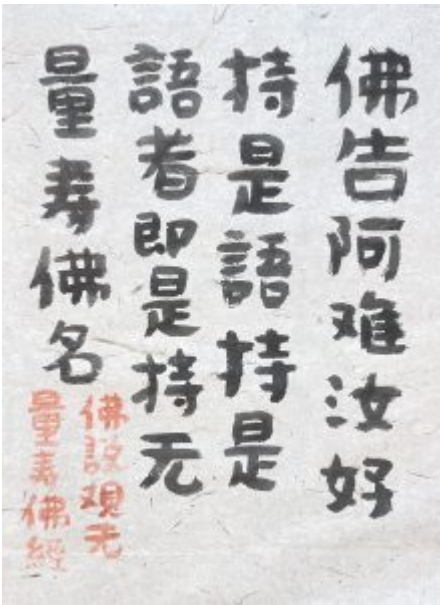 佛告阿难汝好
持是語持是
語者即是持无
量寿佛名
佛説观无
量寿佛經